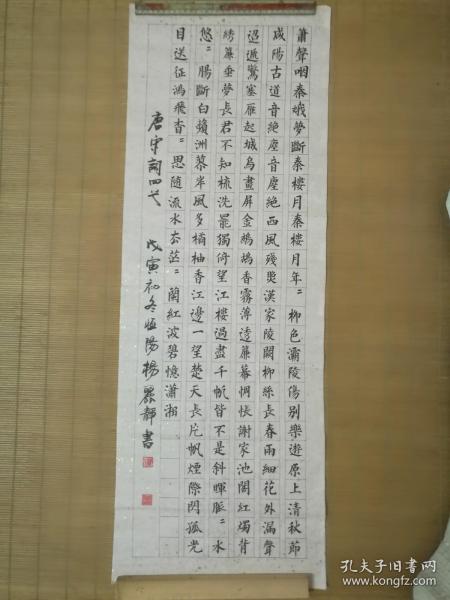 蕭聲咽秦娥夢斷秦樓月秦樓月年〃柳色灞陵傷别樂遊原上清秋節
咸陽古道音絶塵音塵絶西風殘照漢家陵闕柳絲長春雨細花外漏聲
迢遞驚塞雁起城烏畫屏金鷓鴣香霧薄透簾幕惆悵謝家池閣紅燭背
綉簾垂夢長君不知梳洗罷獨倚望江樓過盡千帆皆不是斜暉脈〃水
悠〃腸斷白蘋洲蓼岸風多橘柚香江邊一望楚天長片帆煙際閃孤光
目送征鴻飛杳〃思隨流水去茫〃蘭紅波碧憶瀟湘
唐宋詞四首 戊寅初冬恆陽楊麗靜書
孔夫子旧书网
www.kongfz.com